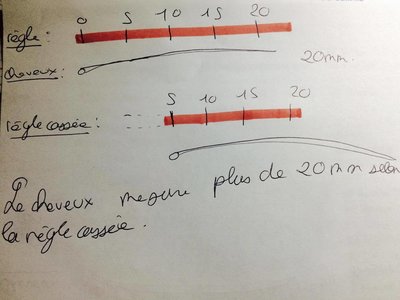 0 5 10 15 20
règle :
cheveux : 20mm.
5 10 15 20
règle cassée :
Le cheveux mesure plus de 20mm selon
la règle cassée.